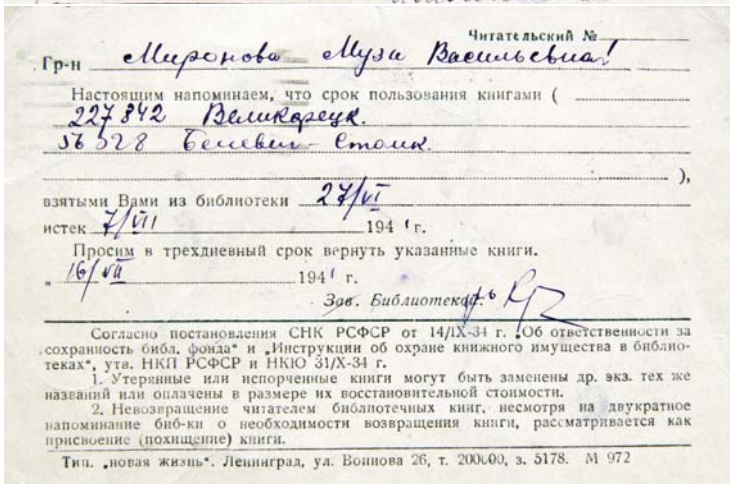 Читательский №
Гр-н Миронова Муза Васильевна!
Настоящим напоминаем, что срок пользования книгами (
227842 Великорецк.
56528
),
взятыми Вами из библиотеки 27/VI
истек 7/VII 1941 г.
Просим в трехдневный срок вернуть указанные книги.
„ 16/VII 1941 г.
Зав. Библиотекой
Согласно постановления СНК РСФСР от 14/IX-34 г. „Об ответственности за
сохранность библ. фонда" и „Инструкции об охране книжного имущества в библио-
теках", утв. НКП РСФСР и НКЮ 31/X-34 г.
1. Утерянные или испорченные книги могут быть заменены др. экз. тех же
названий или оплачены в размере их восстановительной стоимости.
2. Невозвращение читателем библиотечных книг, несмотря на двукратное
напоминание биб-ки о необходимости возвращения книги, рассматривается как
присвоение (похищение) книги.
Тип. „новая жизнь". Ленинград, ул. Воинова 26, т. 200000, з. 5178. М 972